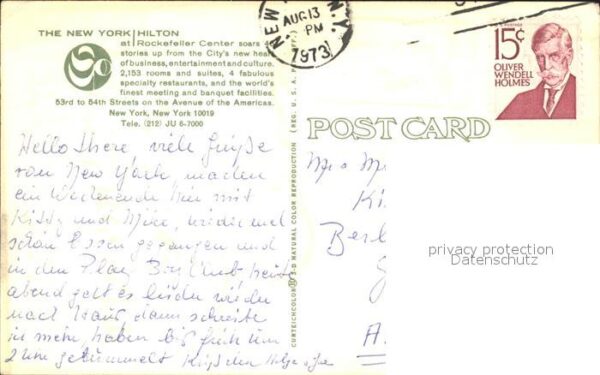 THE NEW YORK HILTON
at Rockefeller Center soars 4
stories up from the City's new hear
of business, entertainment and culture.
2,153 rooms and suites, 4 fabulous
specialty restaurants, and the world's
finest meeting and banquet facilities.
53rd to 54th Streets on the Avenue of the Americas.
New York, New York 10019
Tele. (212) JU 6-7000
Hello there viele Grüße
von New York, machen
ein Wochenende hier mit
Kitty und Mike, sind
schön Essen gegangen und
in den Play Boy Club heute
abend geht es leider wieder
nach Haus, dann schreibe
ich mehr, haben bis früh um
2 Uhr gebummelt
CURTEICHCOLOR 3-D NATURAL COLOR REPRODUCTION (REG. U.S.A. P
NEW N.Y.
AUG 13
PM
1973
POSTAGE
15¢
OLIVER
WENDELL
HOLMES
POST CARD
Ki
Berl
A
privacy protection
Datenschutz